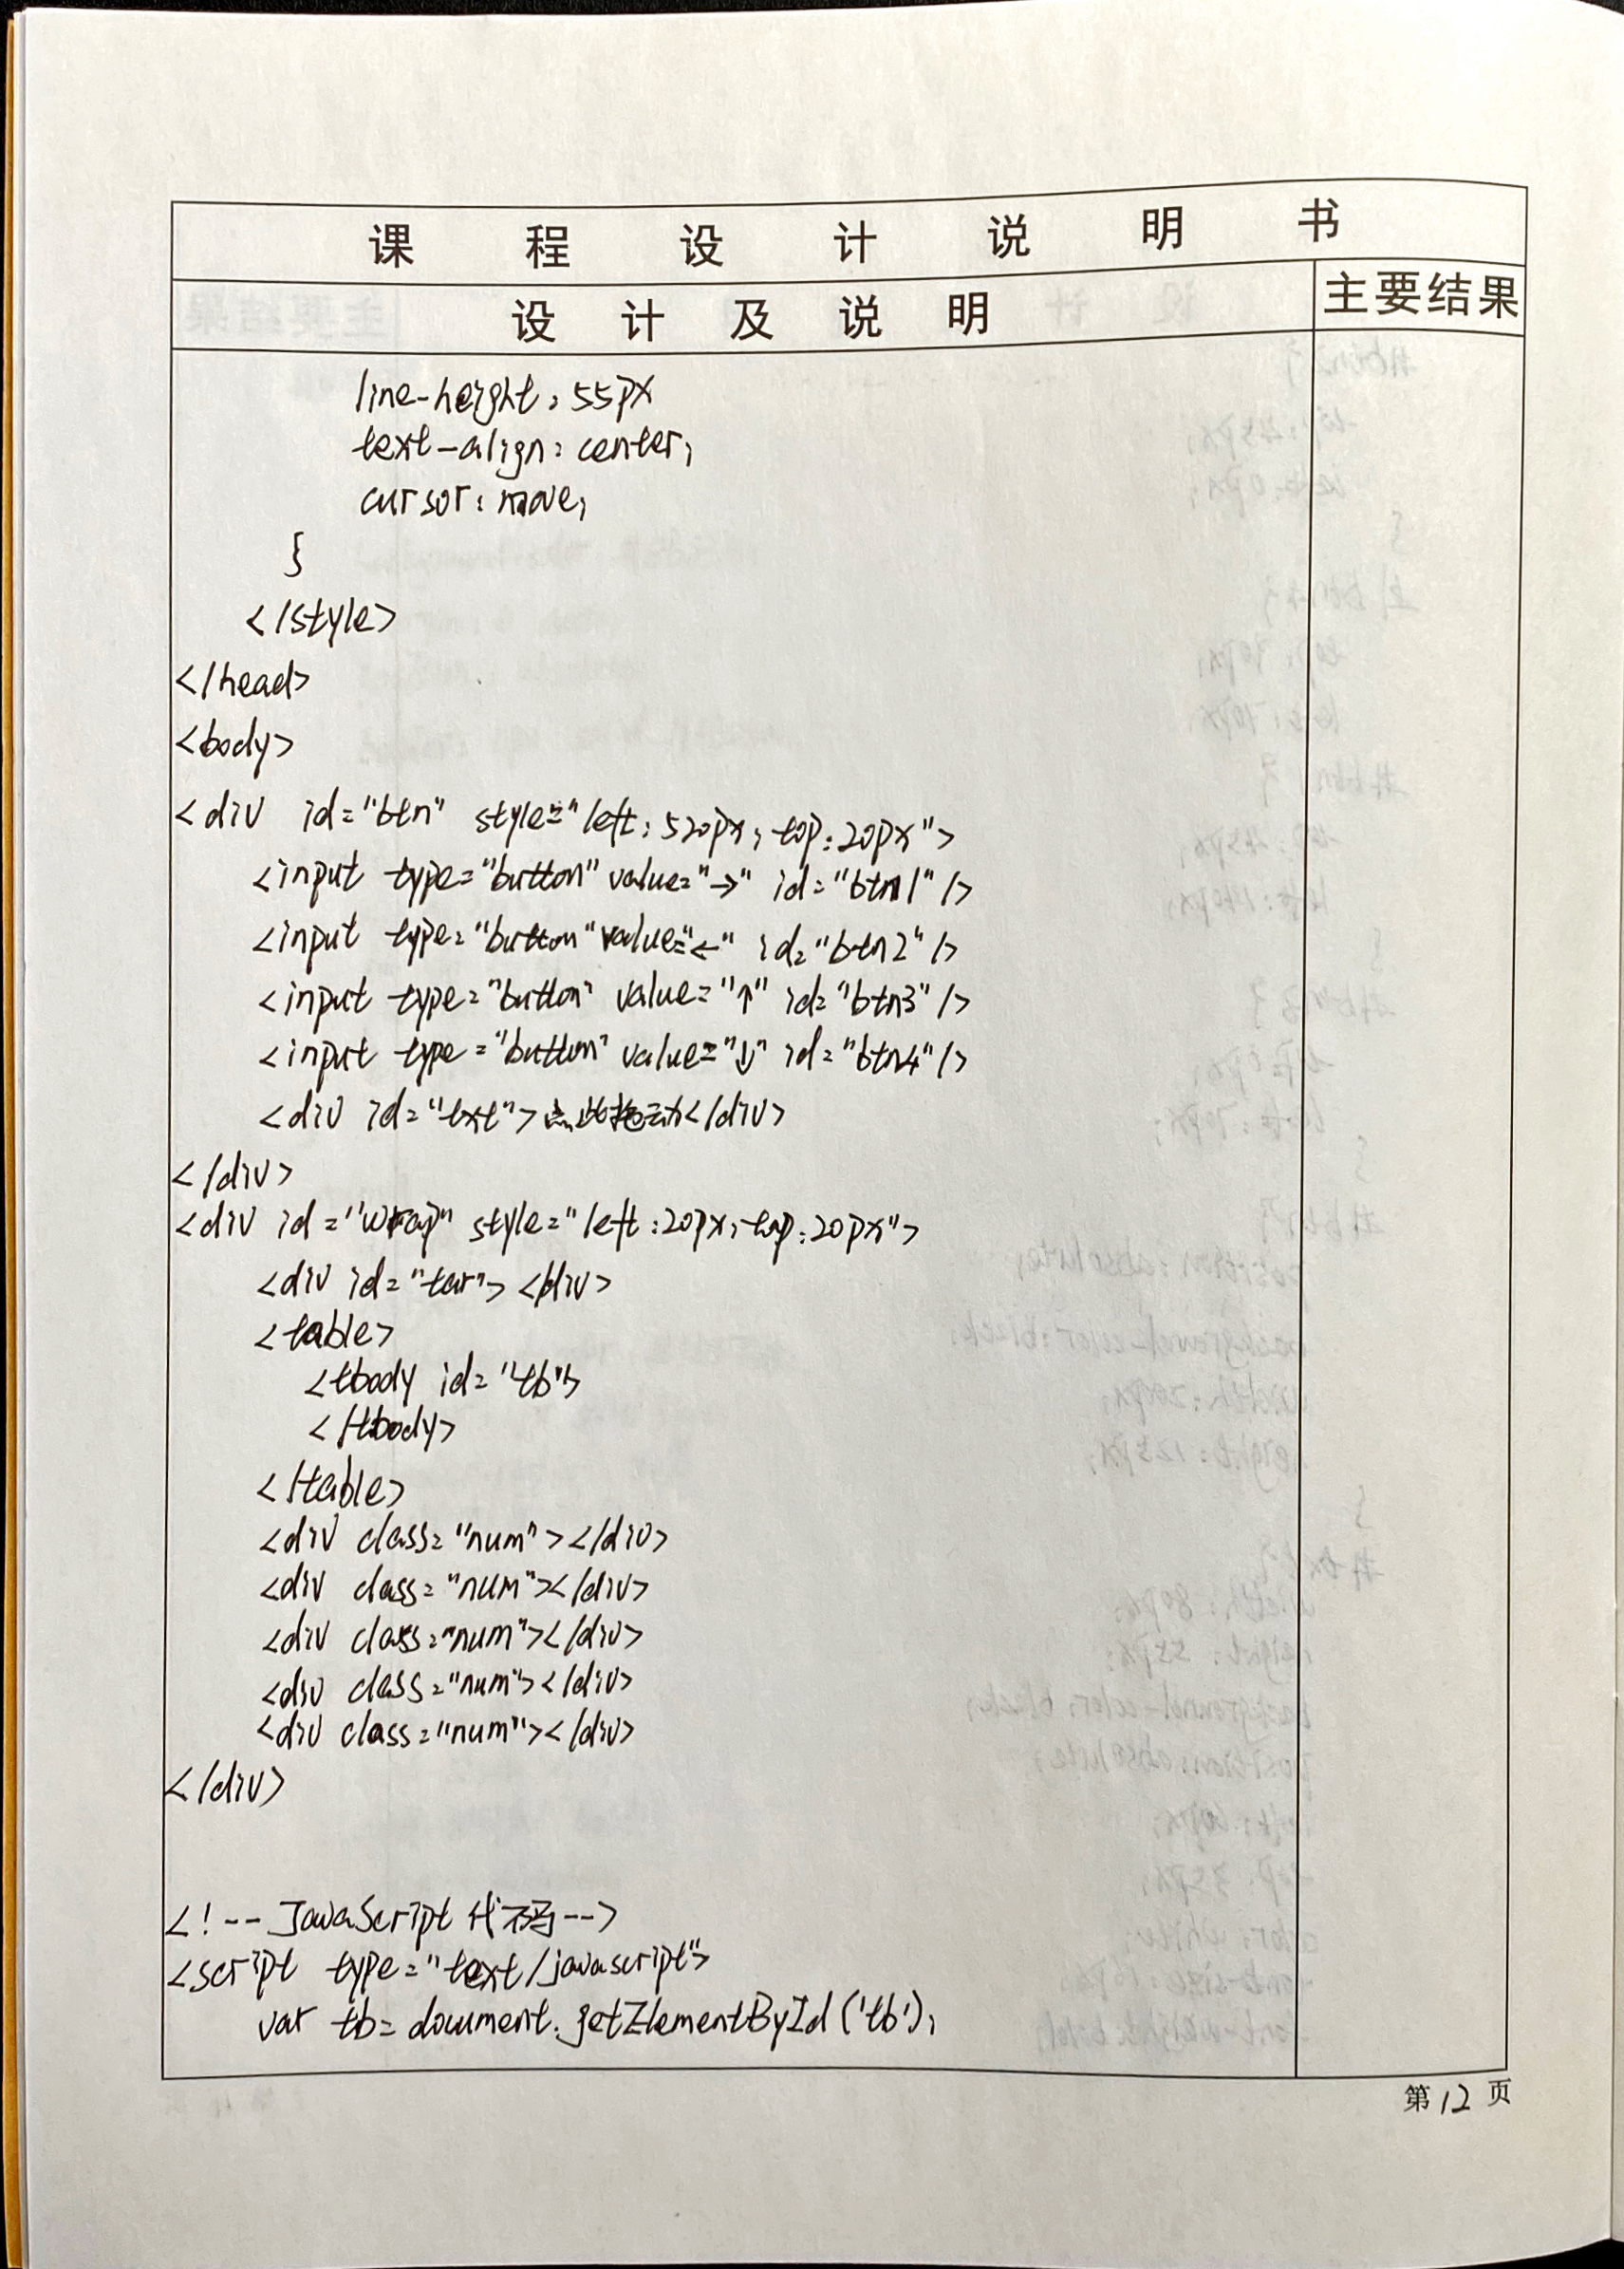 课程设计说明书
设计及说明 主要结果
line-height: 55px
text-align: center;
cursor: move;
}
</style>
</head>
<body>
<div id="btn" style="left: 520px; top: 20px">
<input type="button" value="→" id="btn1" />
<input type="button" value="←" id="btn2" />
<input type="button" value="↑" id="btn3" />
<input type="button" value="↓" id="btn4" />
<div id="txt">点此拖动</div>
</div>
<div id="wrap" style="left:20px; top:20px">
<div id="tar"> </div>
<table>
<tbody id="tb">
</tbody>
</table>
<div class="num"></div>
<div class="num"></div>
<div class="num"></div>
<div class="num"></div>
<div class="num"></div>
</div>
<!-- JavaScript 代码-->
<script type="text/javascript">
var tb= document.getElementById('tb');
第12页